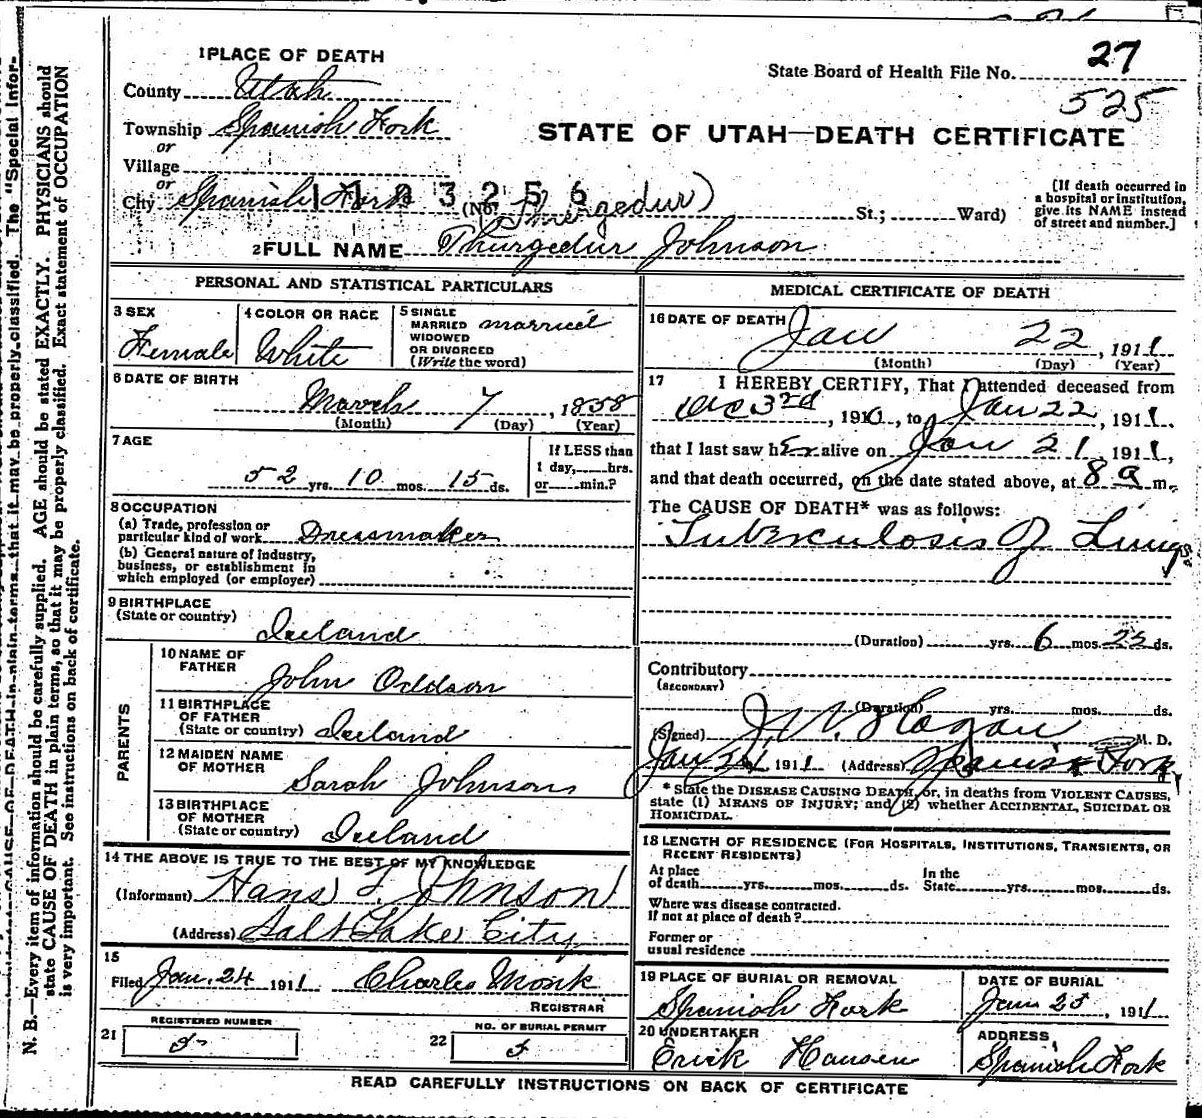 1 PLACE OF DEATH
County Utah
Township Spanish Fork
or
Village
or
City Spanish Fork (No. Thurgedur) St.; Ward)
1103256
State Board of Health File No. 27
525
STATE OF UTAH—DEATH CERTIFICATE
[If death occurred in
a hospital or institution,
give its NAME instead
of street and number.]
2 FULL NAME Thurgedur Johnson
PERSONAL AND STATISTICAL PARTICULARS
3 SEX
Female
4 COLOR OR RACE
White
5 SINGLE
MARRIED
WIDOWED
OR DIVORCED
(Write the word)
married
6 DATE OF BIRTH
March 7, 1858
(Month) (Day) (Year)
7 AGE
52 yrs. 10 mos. 15 ds.
If LESS than
1 day, hrs.
or min.?
8 OCCUPATION
(a) Trade, profession or
particular kind of work Dressmaker
(b) General nature of industry,
business, or establishment in
which employed (or employer)
9 BIRTHPLACE
(State or country)
Iceland
PARENTS
10 NAME OF
FATHER
John Oddson
11 BIRTHPLACE
OF FATHER
(State or country) Iceland
12 MAIDEN NAME
OF MOTHER
Sarah Johnson
13 BIRTHPLACE
OF MOTHER
(State or country) Iceland
14 THE ABOVE IS TRUE TO THE BEST OF MY KNOWLEDGE
(Informant) Hans T. Johnson
(Address) Salt Lake City
15
Filed Jan. 24 1911 Charles Monk
REGISTRAR
21 REGISTERED NUMBER
5
22 NO. OF BURIAL PERMIT
5
MEDICAL CERTIFICATE OF DEATH
16 DATE OF DEATH
Jan 22, 1911
(Month) (Day) (Year)
17 I HEREBY CERTIFY, That I attended deceased from
Dec 3rd, 1910, to Jan 22, 1911,
that I last saw her alive on Jan 21 1911,
and that death occurred, on the date stated above, at 8 a m.
The CAUSE OF DEATH* was as follows:
Tuberculosis of Lungs.
(Duration) yrs. 6 mos. 23 ds.
Contributory
(SECONDARY)
(Duration) yrs. mos. ds.
(Signed) J. W. Hagan M. D.
Jan 24 1911 (Address) Spanish Fork
* State the DISEASE CAUSING DEATH, or, in deaths from VIOLENT CAUSES,
state (1) MEANS OF INJURY; and (2) whether ACCIDENTAL, SUICIDAL OR
HOMICIDAL.
18 LENGTH OF RESIDENCE (FOR HOSPITALS, INSTITUTIONS, TRANSIENTS, OR
RECENT RESIDENTS)
At place
of death yrs. mos. ds.
In the
State yrs. mos. ds.
Where was disease contracted.
If not at place of death?
Former or
usual residence
19 PLACE OF BURIAL OR REMOVAL
Spanish Fork
DATE OF BURIAL
Jan 25, 1911
20 UNDERTAKER
Erick Hansen
ADDRESS
Spanish Fork
READ CAREFULLY INSTRUCTIONS ON BACK OF CERTIFICATE
N. B.—Every item of information should be carefully supplied. AGE should be stated EXACTLY. PHYSICIANS should
state CAUSE OF DEATH in plain terms, so that it may be properly classified. Exact statement of OCCUPATION
is very important. See instructions on back of certificate.
CAUSE OF DEATH in plain terms, that it may be properly classified. The "Special Infor-